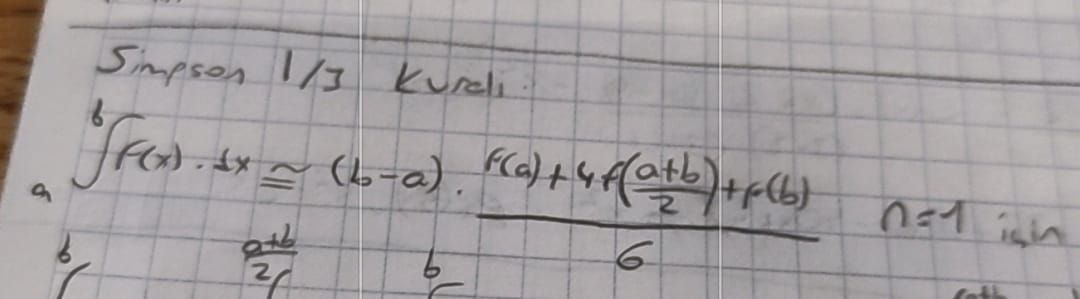 Simpson 1/3 Kuralı
∫_a^b f(x).dx ≅ (b-a). (f(a)+4f((a+b)/2)+f(b))/6 n=1 için
b∫ (a+b)/2∫ b∫